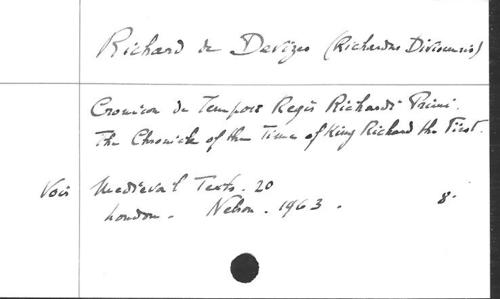 Richard de Devizes (Richardus Divisensis)
Cronicon de Tempore Regis Richardi Primi.
The Chronicle of the Time of King Richard the First.
Voir Medieval Texts. 20
London. Nelson. 1963. 8.